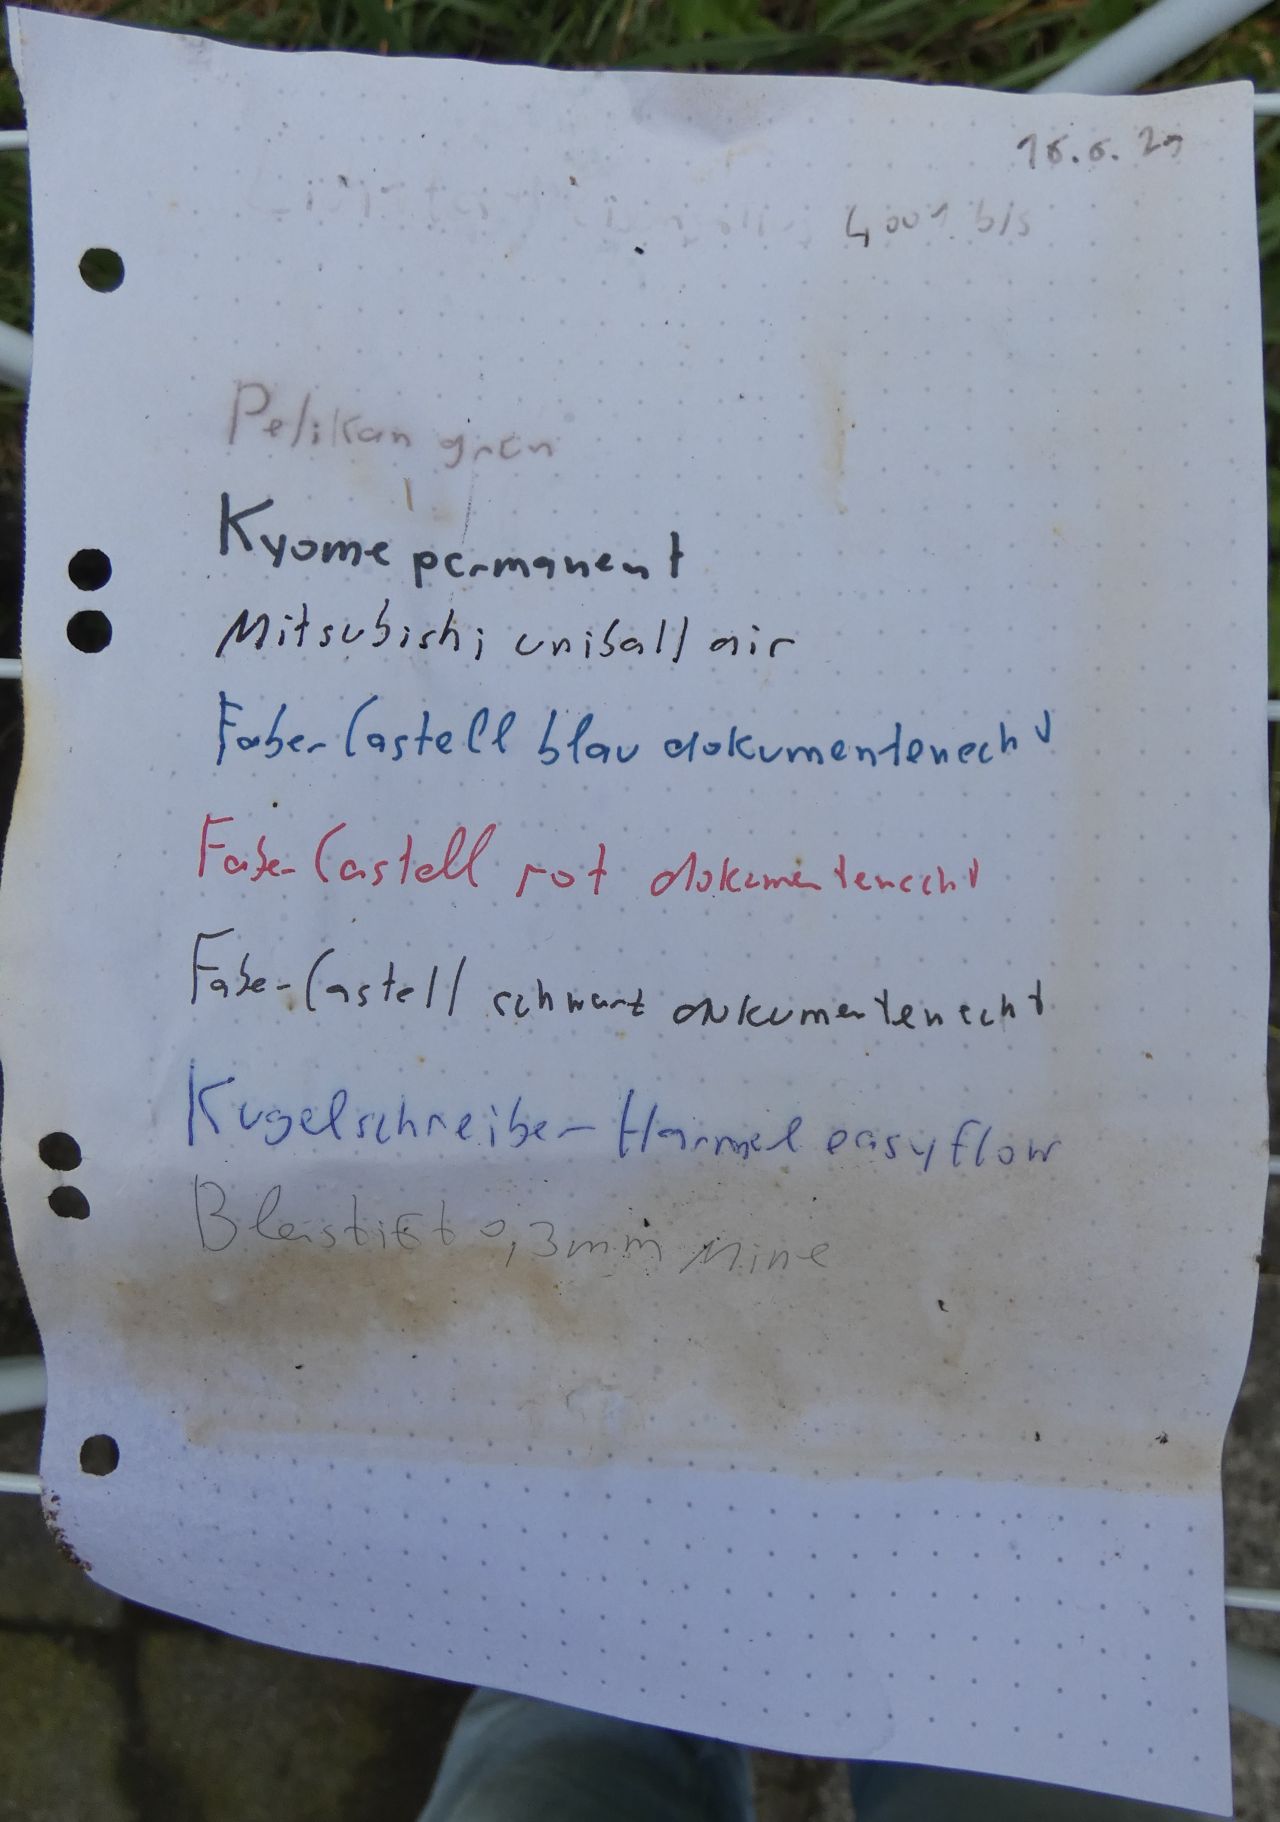 4001 b/s
Pelikan grün
Kyome permanent
Mitsubishi uniball air
Faber-Castell blau dokumentenecht
Faber-Castell rot dokumentenecht
Faber-Castell schwarz dokumentenecht
Kugelschreiber-Hammel easyflow
Bleistift 0,3mm Mine